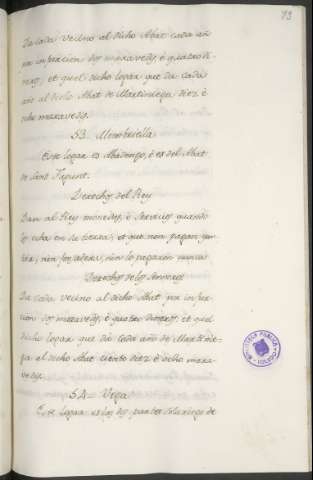 73
Da cada vecino al dicho Abat cada año
por infurcion dos maravedis, è quatro di-
neros, et quel dicho logar que da cada
año al dicho Abat de Martiniega diez è
ocho maravedis.
53 Membriella
Este logar es Abadengo, è es del Abat
de Sant Fagunt.
Derechos del Rey
Dan al Rey monedas, è servicios quando
los echa en su tierra, et que non pagan yan-
tar, nin fonsadera, nin lo pagaron nunca
Derechos de los Sennores
Da cada vecino al dicho Abat por infur-
cion dos maravedis, è quatro dineros, et quel
dicho logar que da cada año de Martinie-
ga al dicho Abat ciento diez è ocho mara-
vedis.
54 Vega
Este logar es los dos partes Solariego de
BIBLIOTECA PUBLICA
TOLEDO